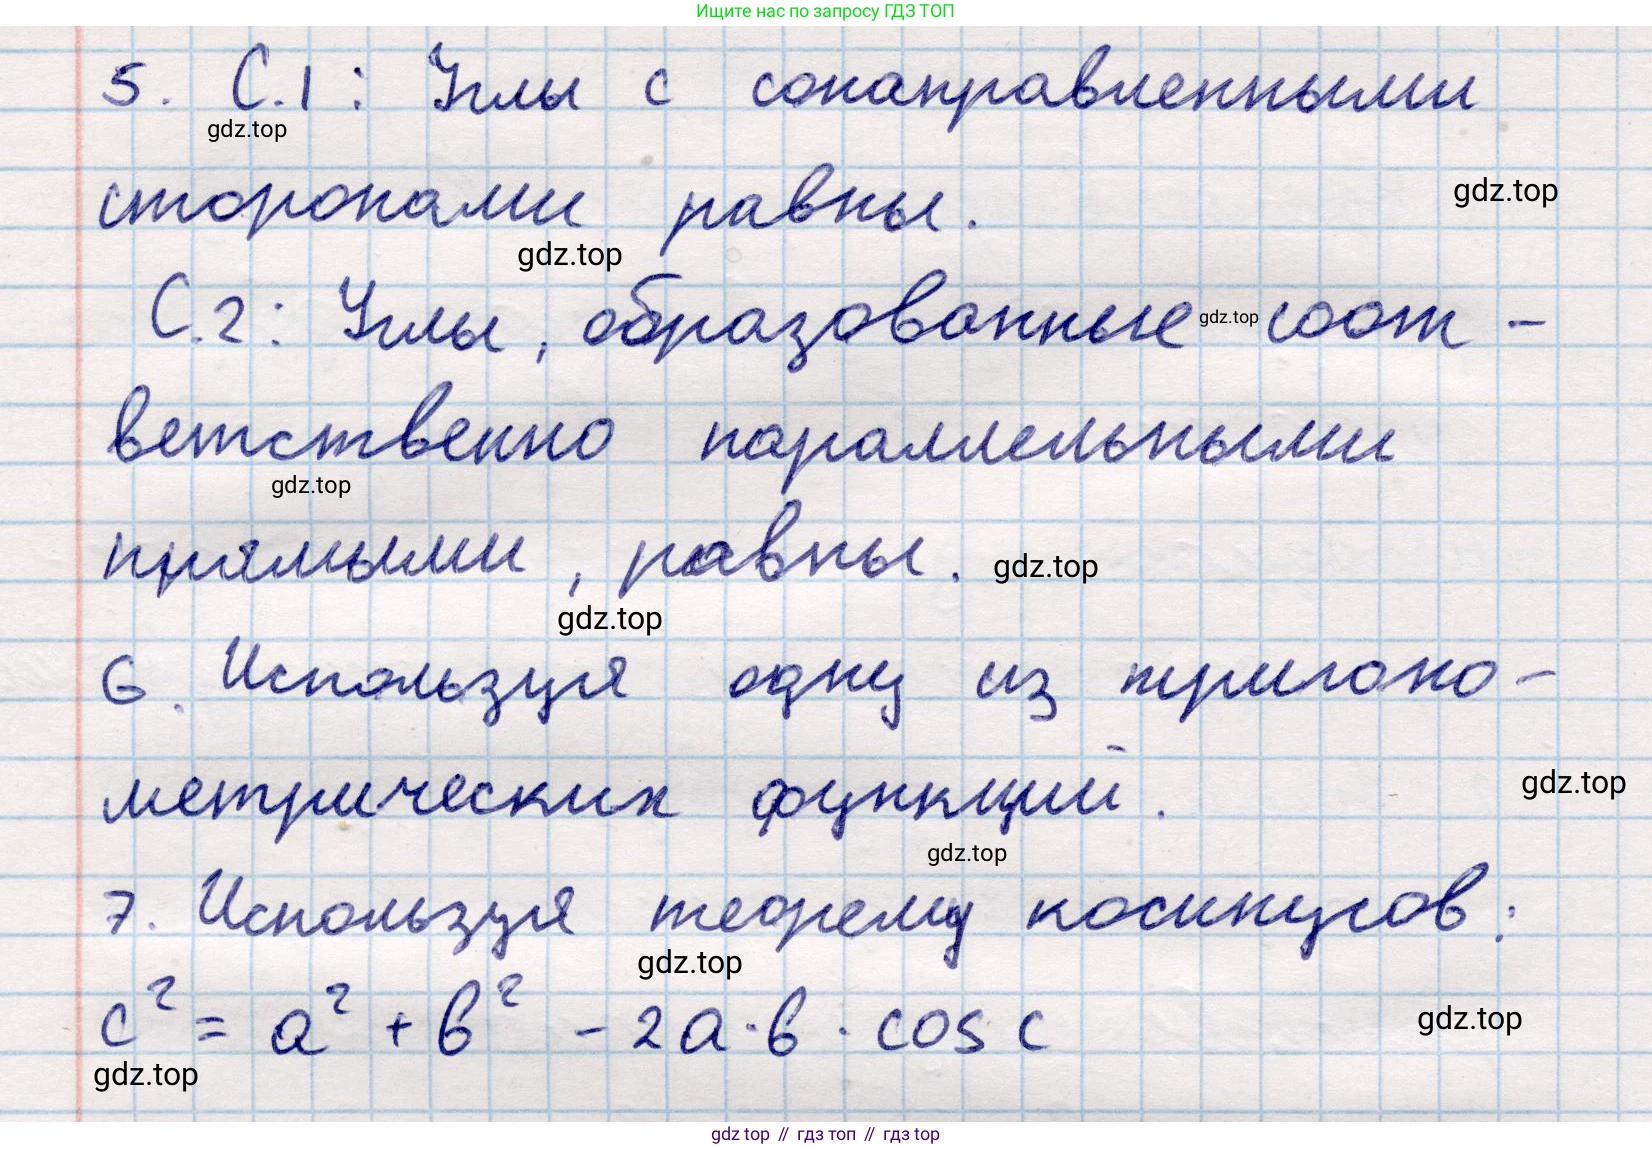 Ищите нас по запросу ГДЗ ТОП
5. С.1: Углы с сонаправленными
gdz.top
сторонами равны.
gdz.top
gdz.top
С.2: Углы, образованные gdz.top соот-
ветственно параллельными
gdz.top
прямыми, равны. gdz.top
gdz.top
6. Используя одну из тригоно-
метрических функций.
gdz.top
gdz.top
7. Используя теорему косинусов:
gdz.top
c² = a² + b² - 2a·b·cos c
gdz.top
gdz.top
gdz top // гдз топ // гдз top